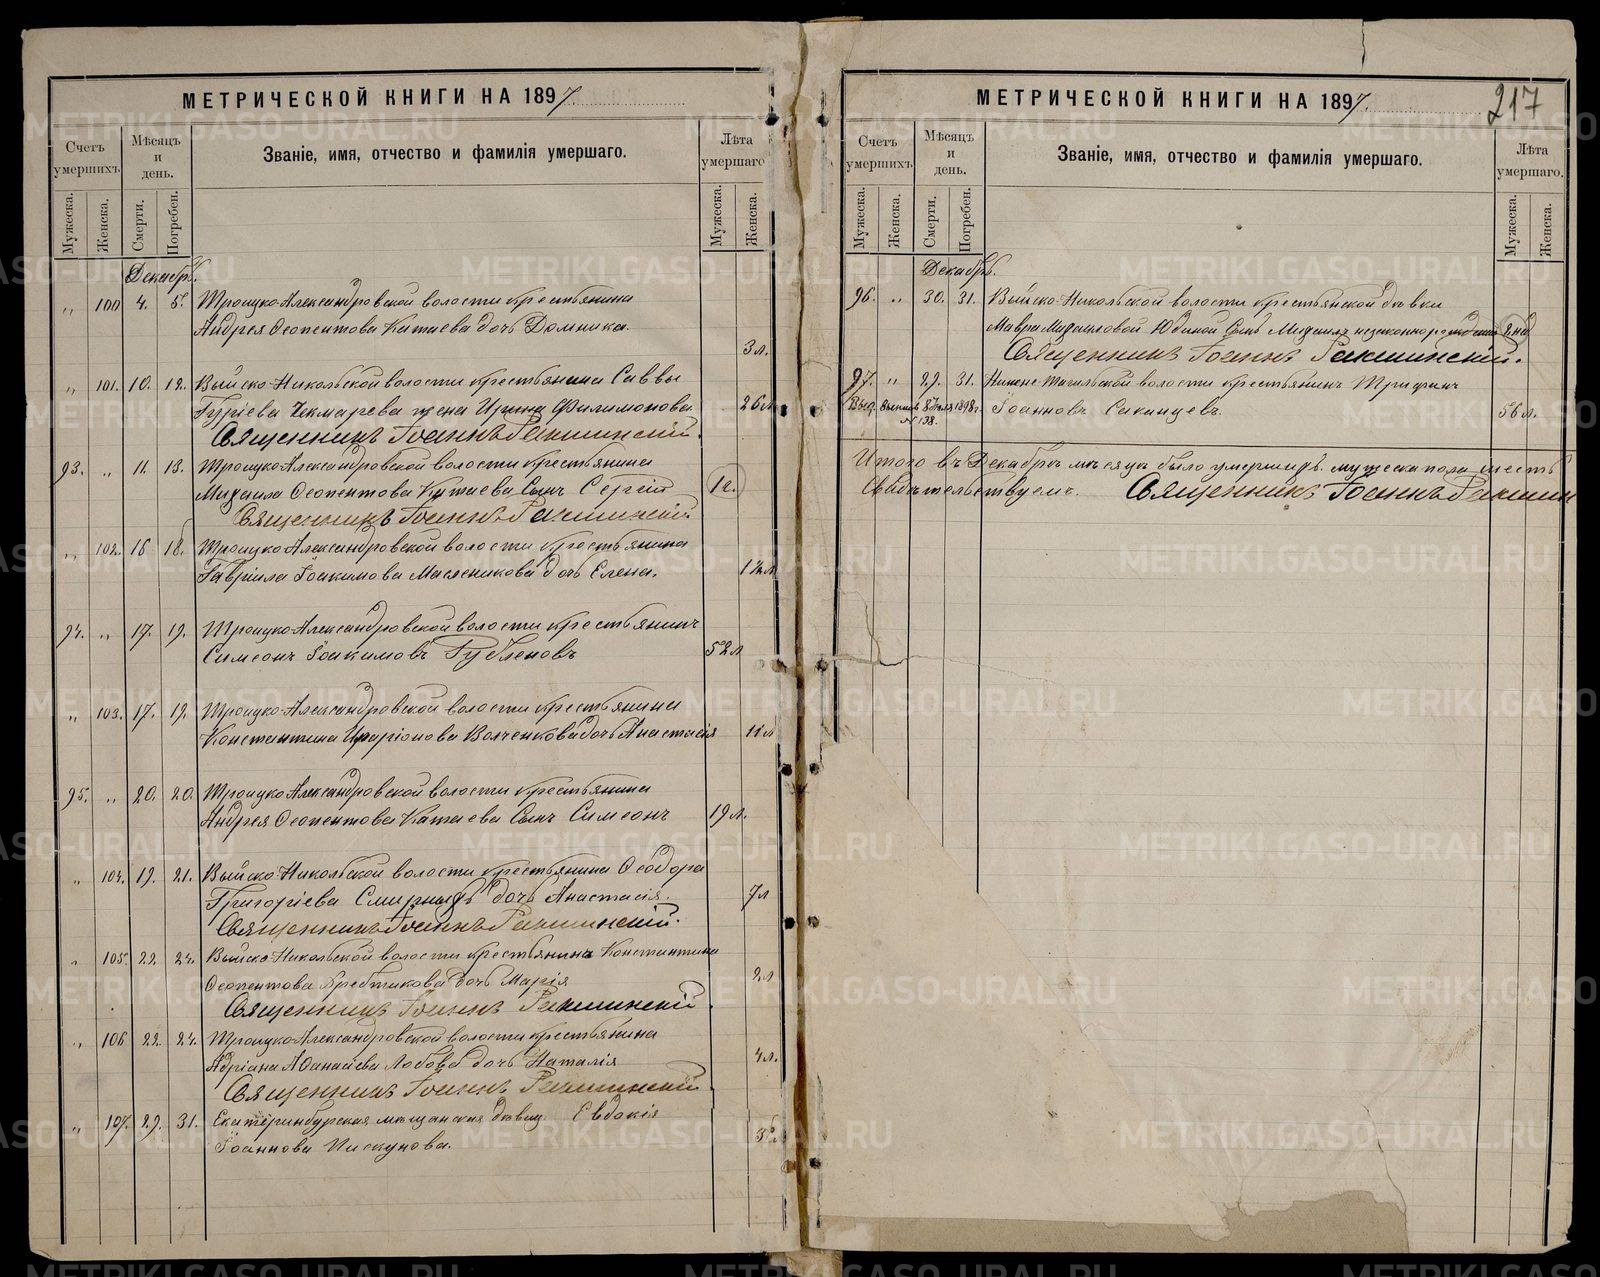 МЕТРИЧЕСКОЙ КНИГИ НА 1897
Счетъ умершихъ.
Мѣсяцъ и день.
Званіе, имя, отчество и фамилія умершаго.
Лѣта умершаго
Мужеска. Женска. Смерти. Погребен. Мужеска. Женска.
Декабрь.
„ 100 4. 5. Троицко-Александровской волости крестьянина
Андрея Ѳеопентова Катаева дочь Домника.
3 л.
„ 101. 10. 12. Выйско-Никольской волости крестьянина Саввы
Гуріева Чекмарева жена Ирина Филимонова 26 л
Священникъ Іоаннъ
93. „ 11. 13. Троицко-Александровской волости крестьянина
Михаила Ѳеопентова Катаева сынъ Сергій 1 г.
Священникъ Іоаннъ
„ 102. 16 18. Троицко-Александровской волости крестьянина
Гавріила Іоакимова Масленикова дочь Елена.
94. „ 17. 19. Троицко-Александровской волости крестьянинъ
Симеонъ Іоакимовъ 52 л
„ 103. 17. 19. Троицко-Александровской волости крестьянина
Константина Иларіонова Волченкова дочь Анастасія 11 л
95. „ 20. 20. Троицко-Александровской волости крестьянина
Андрея Ѳеопентова Катаева сынъ Симеонъ 19 л.
„ 104. 19. 21. Выйско-Никольской волости крестьянина Ѳеодора
Григоріева Смирныхъ дочь Анастасія. 7 л
Священникъ Іоаннъ
„ 105. 22. 24. Выйско-Никольской волости крестьянина Константина
Ѳеопентова дочь Марія 2 л
Священникъ Іоаннъ
„ 106 22. 24. Троицко-Александровской волости крестьянина
Адріана Лобова дочь Наталія 4 л.
Священникъ Іоаннъ
„ 107. 29. 31. Екатеринбургская мѣщанская дѣвица Евдокія
Іоаннова Пискунова.
МЕТРИЧЕСКОЙ КНИГИ НА 1897.
217
Счетъ умершихъ.
Мѣсяцъ и день.
Званіе, имя, отчество и фамилія умершаго.
Лѣта умершаго.
Мужеска. Женска. Смерти. Погребен. Мужеска. Женска.
Декабрь.
96. „ 30. 31. Выйско-Никольской волости крестьянской дѣвки
Мавры Михаиловой Юдиной сынъ Михаилъ незаконнорожденный
Священникъ Іоаннъ
97. „ 29. 31. Нижне-Тагильской волости крестьянинъ Трифонъ
Іоанновъ Сакинцевъ. 56 л.
Выд. 8 Іюля 1898 г.
№ 138.
Итого въ Декабрѣ мѣсяцѣ было умершихъ мужеска пола шесть
Свидѣтельствуемъ. Священникъ Іоаннъ
METRIKI.GASO-URAL.RU